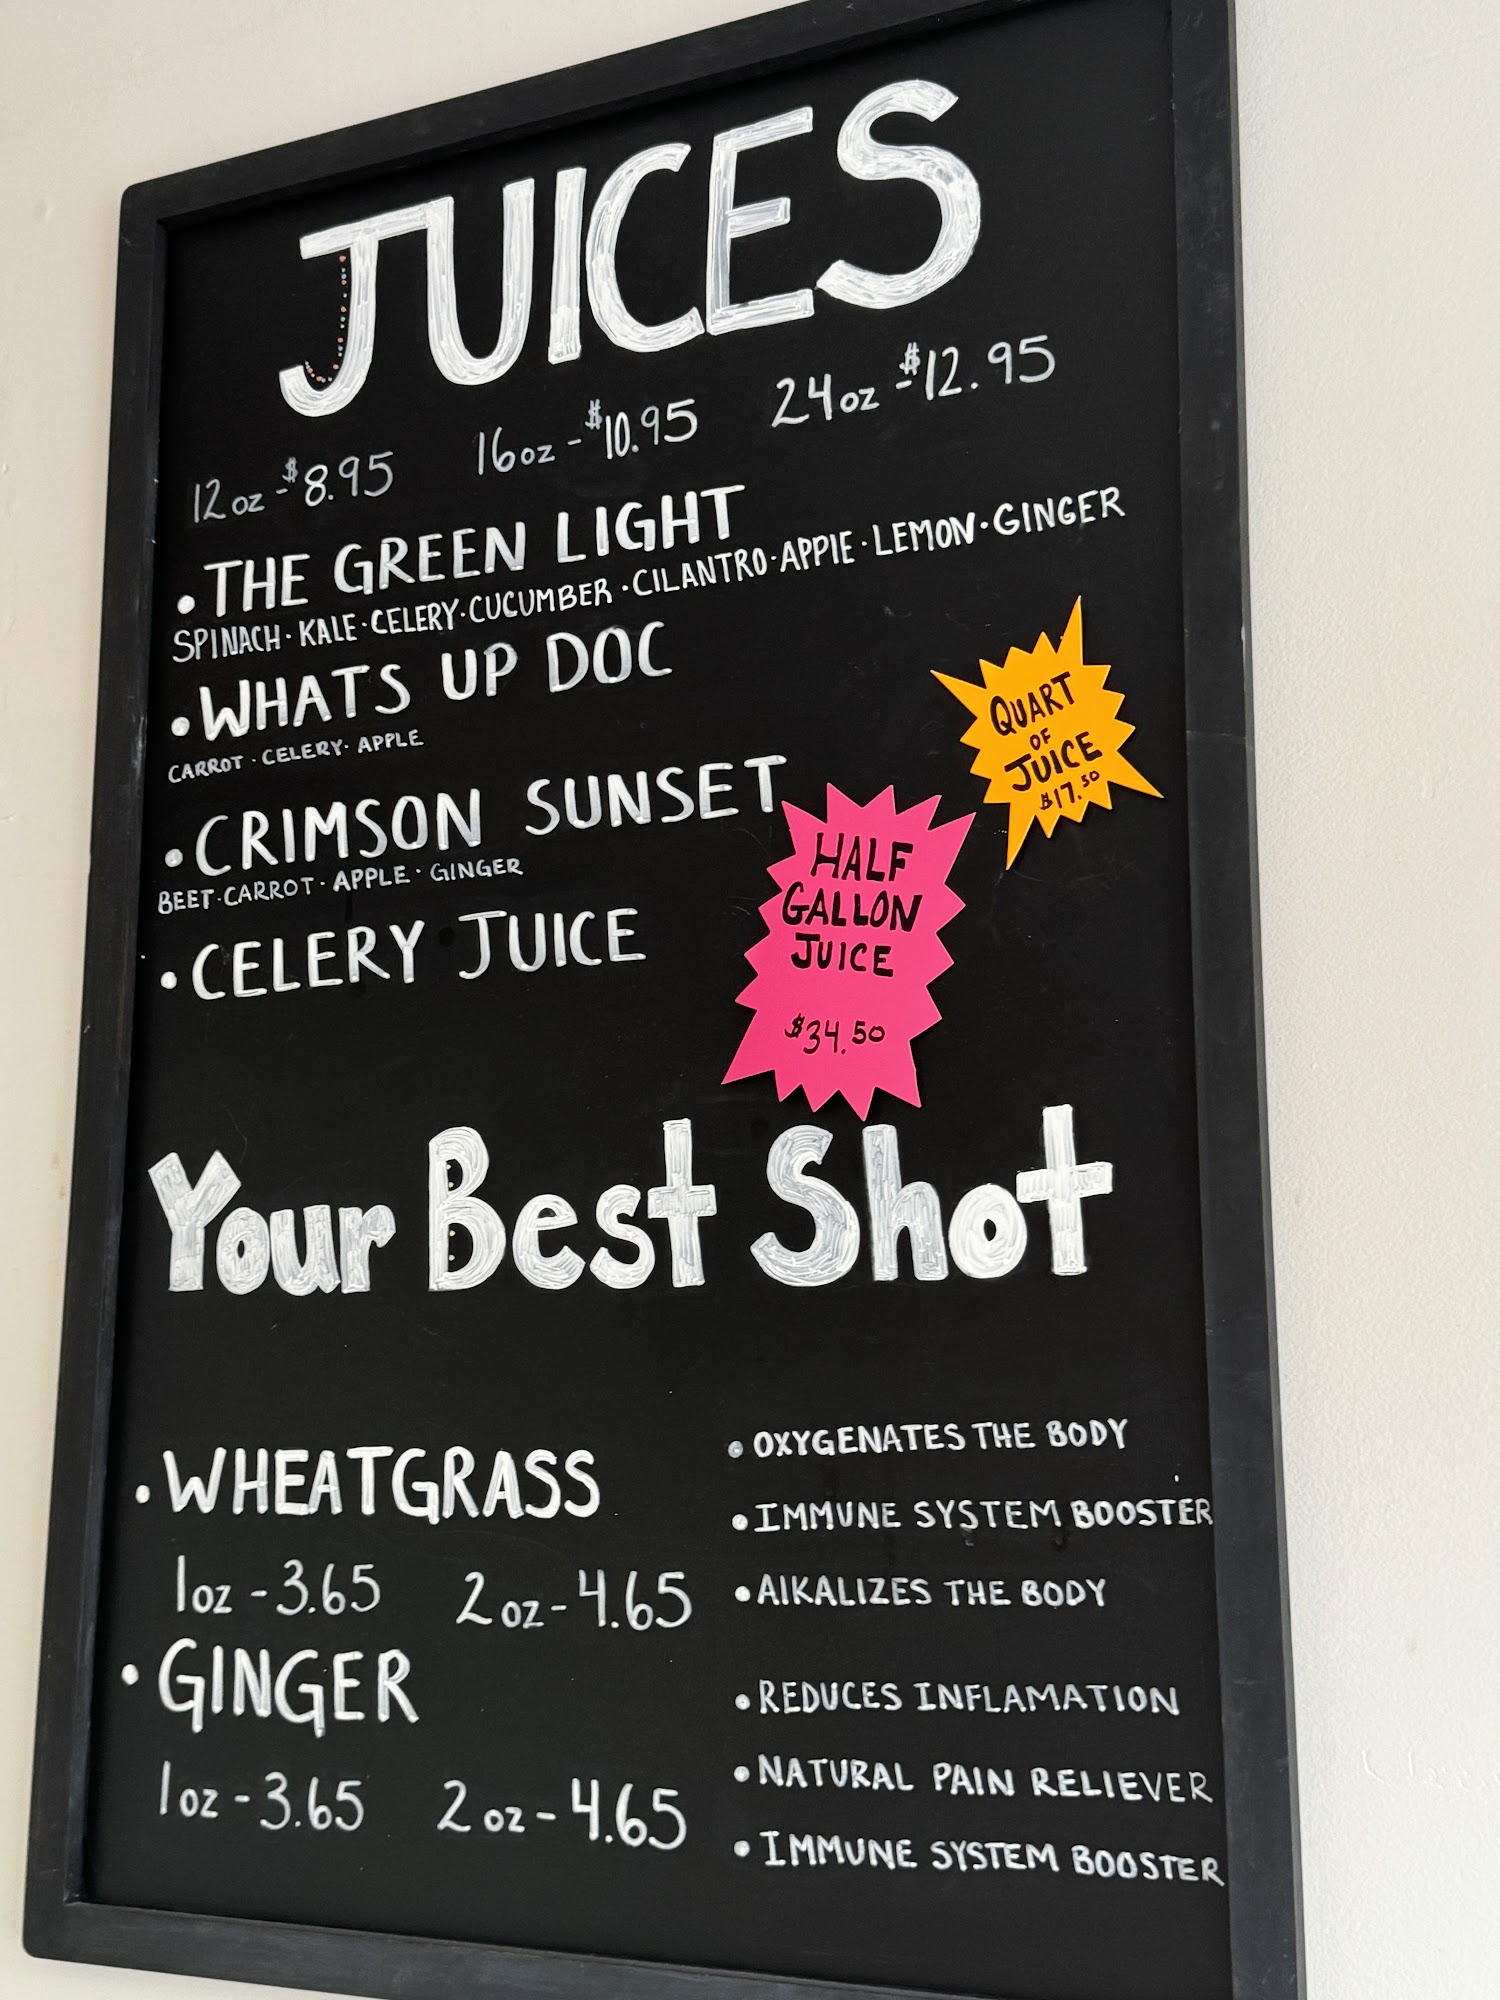 JUICES
12oz-$8.95 16oz-$10.95 24oz-$12.95
•THE GREEN LIGHT
SPINACH·KALE·CELERY·CUCUMBER·CILANTRO·APPlE·LEMON·GINGER
•WHATS UP DOC
CARROT·CELERY·APPLE
•CRIMSON SUNSET
BEET·CARROT·APPLE·GINGER
•CELERY JUICE
QUART
OF
JUICE
$17.50
HALF
GALLON
JUICE
$34.50
Your Best Shot
•WHEATGRASS
1oz-3.65 2oz-4.65
•OXYGENATES THE BODY
•IMMUNE SYSTEM BOOSTER
•AlKALIZES THE BODY
•GINGER
1oz-3.65 2oz-4.65
•REDUCES INFLAMATION
•NATURAL PAIN RELIEVER
•IMMUNE SYSTEM BOOSTER